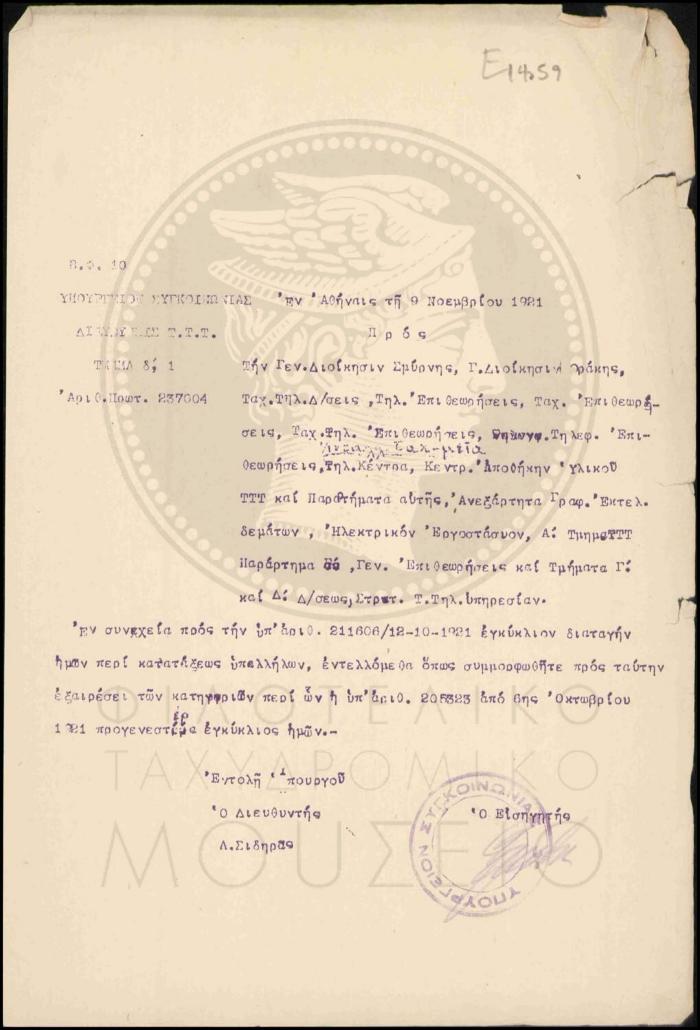 E1459
Β.Φ. 10
ΥΠΟΥΡΓΕΙΟΝ ΣΥΓΚΟΙΝΩΝΙΑΣ
Ἐν Ἀθήναις τῇ 9 Νοεμβρίου 1921
ΔΙΕΥΘΥΝΣΙΣ Τ.Τ.Τ.
Πρός
ΤΜΗΜΑ δ', 1
Τήν Γεν.Διοίκησιν Σμύρνης, Γ.Διοίκησιν Θράκης,
Ἀριθ.Πρωτ. 237004
Ταχ.Τηλ.Δ/σεις ,Τηλ.Ἐπιθεωρήσεις, Ταχ. Ἐπιθεωρή-
σεις, Ταχ.Τηλ. Ἐπιθεωρήσεις, Τηλεφ. Ἐπι-
θεωρήσεις,Τηλ.Κέντρα, Κεντρ.Ἀποθήκην Ὑλικοῦ
ΤΤΤ καί Παρατήματα αὐτῆς,Ἀνεξάρτητα Γραφ.Ἐκτελ.
δεμάτων, Ἠλεκτρικόν Ἐργοστάσυον, Α! ΤμημςΤΤΤ
Παράρτημα ,Γεν. Ἐπιθεωρήσεις καί Τμήματα Γ!
καί Δ! Δ/σεως,Στρατ. Τ.Τηλ.υπηρεσίαν.
Ἐν συνεχεία πρός τήν ὑπ'ἀριθ. 211606/12-10-1921 ἐγκύκλιον διαταγήν
ἡμῶν περί κατατάξεως ὑπαλλήλων, ἐντελλόμεθα ὅπως συμμορφωθῆτε πρός ταύτην
ἐξαιρέσει τῶν κατηγοριῶν περί ὧν ἡ ὑπ'ἀριθ. 205323 ἀπό 6ης Ὀκτωβρίου
1921 προγενεστέρα ἐγκύκλιος ἡμῶν.-
Ἐντολῇ Ὑπουργοῦ
Ὁ Διευθυντής
Ὁ Εἰσηγητής
Λ.Σιδηρᾶς
ΥΠΟΥΡΓΕΙΟΝ ΣΥΓΚΟΙΝΩΝΙΑΣ
ΦΙΛΟΤΕΛΙΚΟ
ΤΑΧΥΔΡΟΜΙΚΟ
ΜΟΥΣΕΙΟ